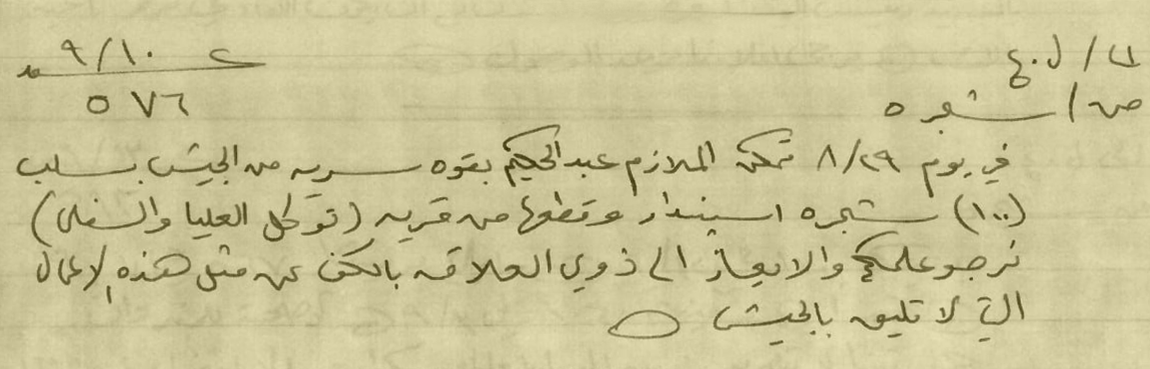 الى / ل.ع ح ٩/١٠
من / شقره ٥٧٦
في يوم ٨/٢٩ تمكن الملازم عبدالحكيم بقوه سريه من الجيش بسلب
(١٠٠) شجره اسبندار وقطعها من قريه (توكل العليا والسفلى)
نرجو علمكم والايعاز الى ذوي العلاقه بالكف عن مثل هذه الاعمال
التي لا تليق بالجيش